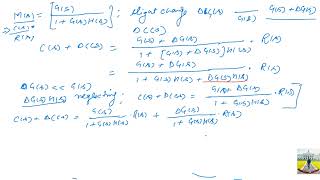 M(s) = [G(s) / 1 + G(s)H(s)] ; slight change DG(s) G(s) G(s) + DG(s)
⇒ C(s) / R(s) DC(s)
C(s) + DC(s) = G(s) + DG(s) / 1 + [G(s) + DG(s)] H(s) . R(s)
= G(s) + DG(s) / 1 + G(s)H(s) + DG(s)H(s) . R(s)
DG(s) << G(s)
DG(s)H(s) neglecting; C(s) + DC(s) = G(s) + DG(s) / 1 + G(s)H(s) . R(s)
C(s) + DC(s) = G(s) / 1 + G(s)H(s) . R(s) + DG(s) / 1 + G(s)H(s) . R(s)